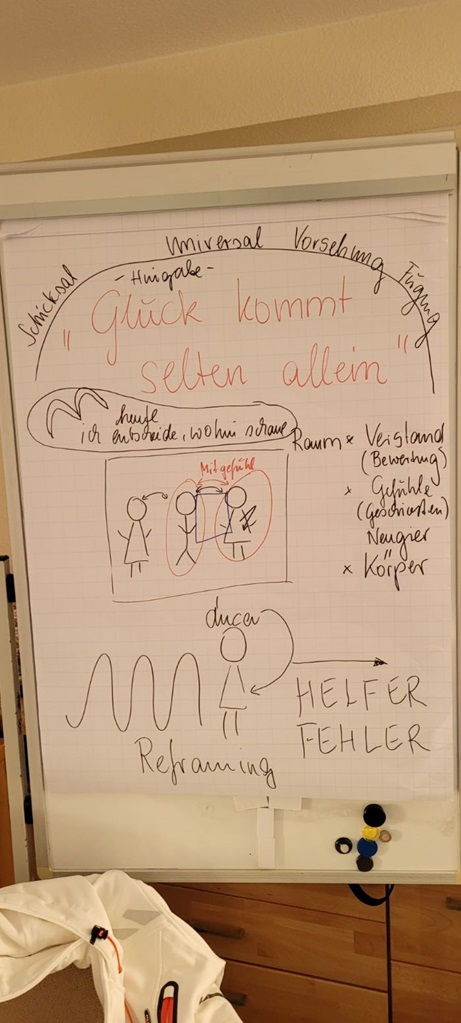 Schicksal
Universal Vorsehung
Fügung
- Hingabe -
"Glück kommt
selten allein"
heute
ich entscheide, wohin schaue
Mitgefühl
Raum × Verstand
(Bewertung)
× Gefühle
(Geschichten)
Neugier
× Körper
HELFER
FEHLER
Reframing